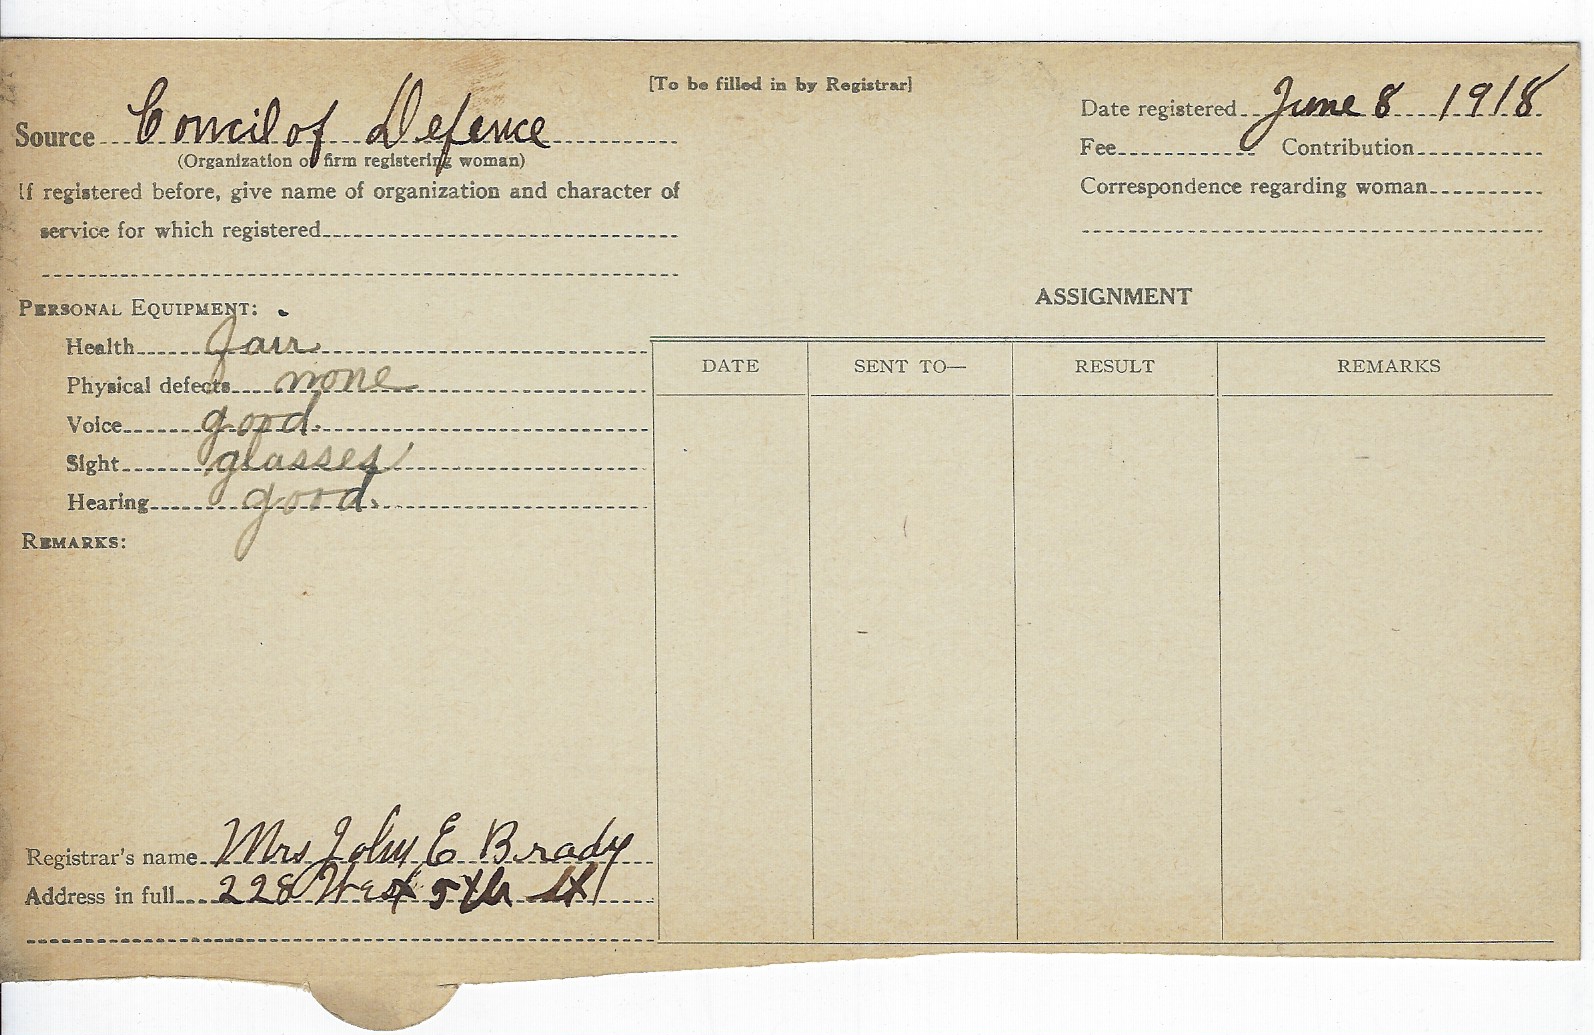 [To be filled in by Registrar]
Source Concil of Defence
(Organization or firm registering woman)
If registered before, give name of organization and character of
service for which registered
Date registered June 8 1918
Fee Contribution
Correspondence regarding woman
PERSONAL EQUIPMENT:
Health fair
Physical defects none
Voice good.
Sight glasses
Hearing good.
REMARKS:
ASSIGNMENT
DATE SENT TO— RESULT REMARKS
Registrar's name Mrs John E Brady
Address in full 228 West 5th St